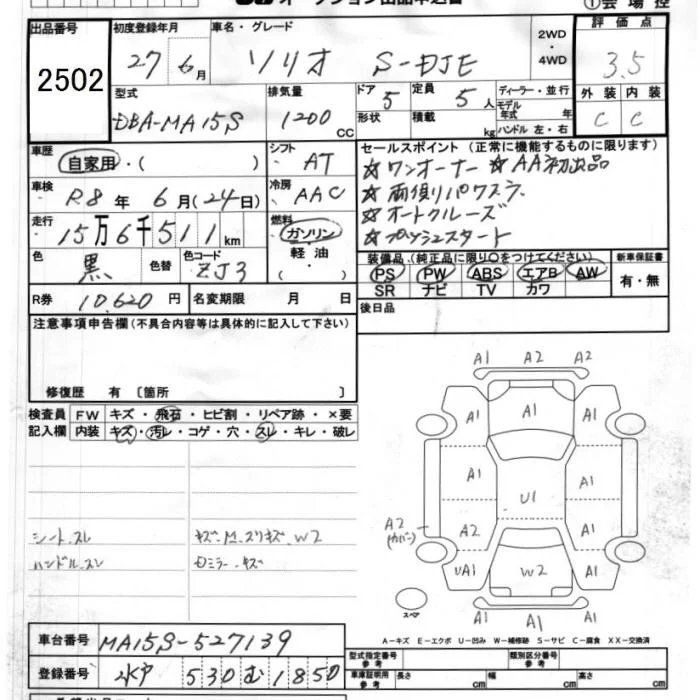 ①会場控
出品番号 初度登録年月 車名・グレード 2WD・4WD 評価点
2502 27年6月 ソリオ S-DJE 3.5
型式 排気量 ドア 定員 ディーラー・並行 外装 内装
DBA-MA15S 1200CC 5 5人 モデル年式 年 C C
形状 積載 kg ハンドル 左・右
車歴 自家用・( ) シフト AT
セールスポイント (正常に機能するものに限ります)
☆ワンオーナー ☆AA初出品
☆両側りパワスラ
☆オートクルーズ
☆プッシュスタート
車検 R8年6月(24日) 冷房 AAC
走行 15万6千511km 燃料 ガソリン・軽油・( )
色 黒 色替 色コード ZJ3
装備品 (純正品に限り○をつけてください) 新車保証書
PS PW ABS エアB AW 有・無
SR ナビ TV カワ
R券 10,620円 名変期限 月 日
後日品
注意事項申告欄(不具合内容等は具体的に記入して下さい)
修復歴 有 〔箇所 〕
検査員記入欄 FW キズ・飛石・ヒビ割・リペア跡・×要
内装 キズ・汚レ・コゲ・穴・スレ・キレ・破レ
シート.スレ
ハンドル.スレ
キズ.M.スリキズ.W2
Dミラー.キズ
A1 A2 A2
A1 A1 A1
A1 A1
U1
A2(カバー) A2 A1
UA1 W2 A1
スペア
A1 A1 A1
A-キズ E-エクボ U-凹み W-補修跡 S-サビ C-腐食 XX-交換済
車台番号 MA15S-527139
登録番号 水戸 530 む 1850
型式指定番号 参考 類別区分番号 参考
車庫証明用 参考 長さ cm 幅 cm 高さ cm